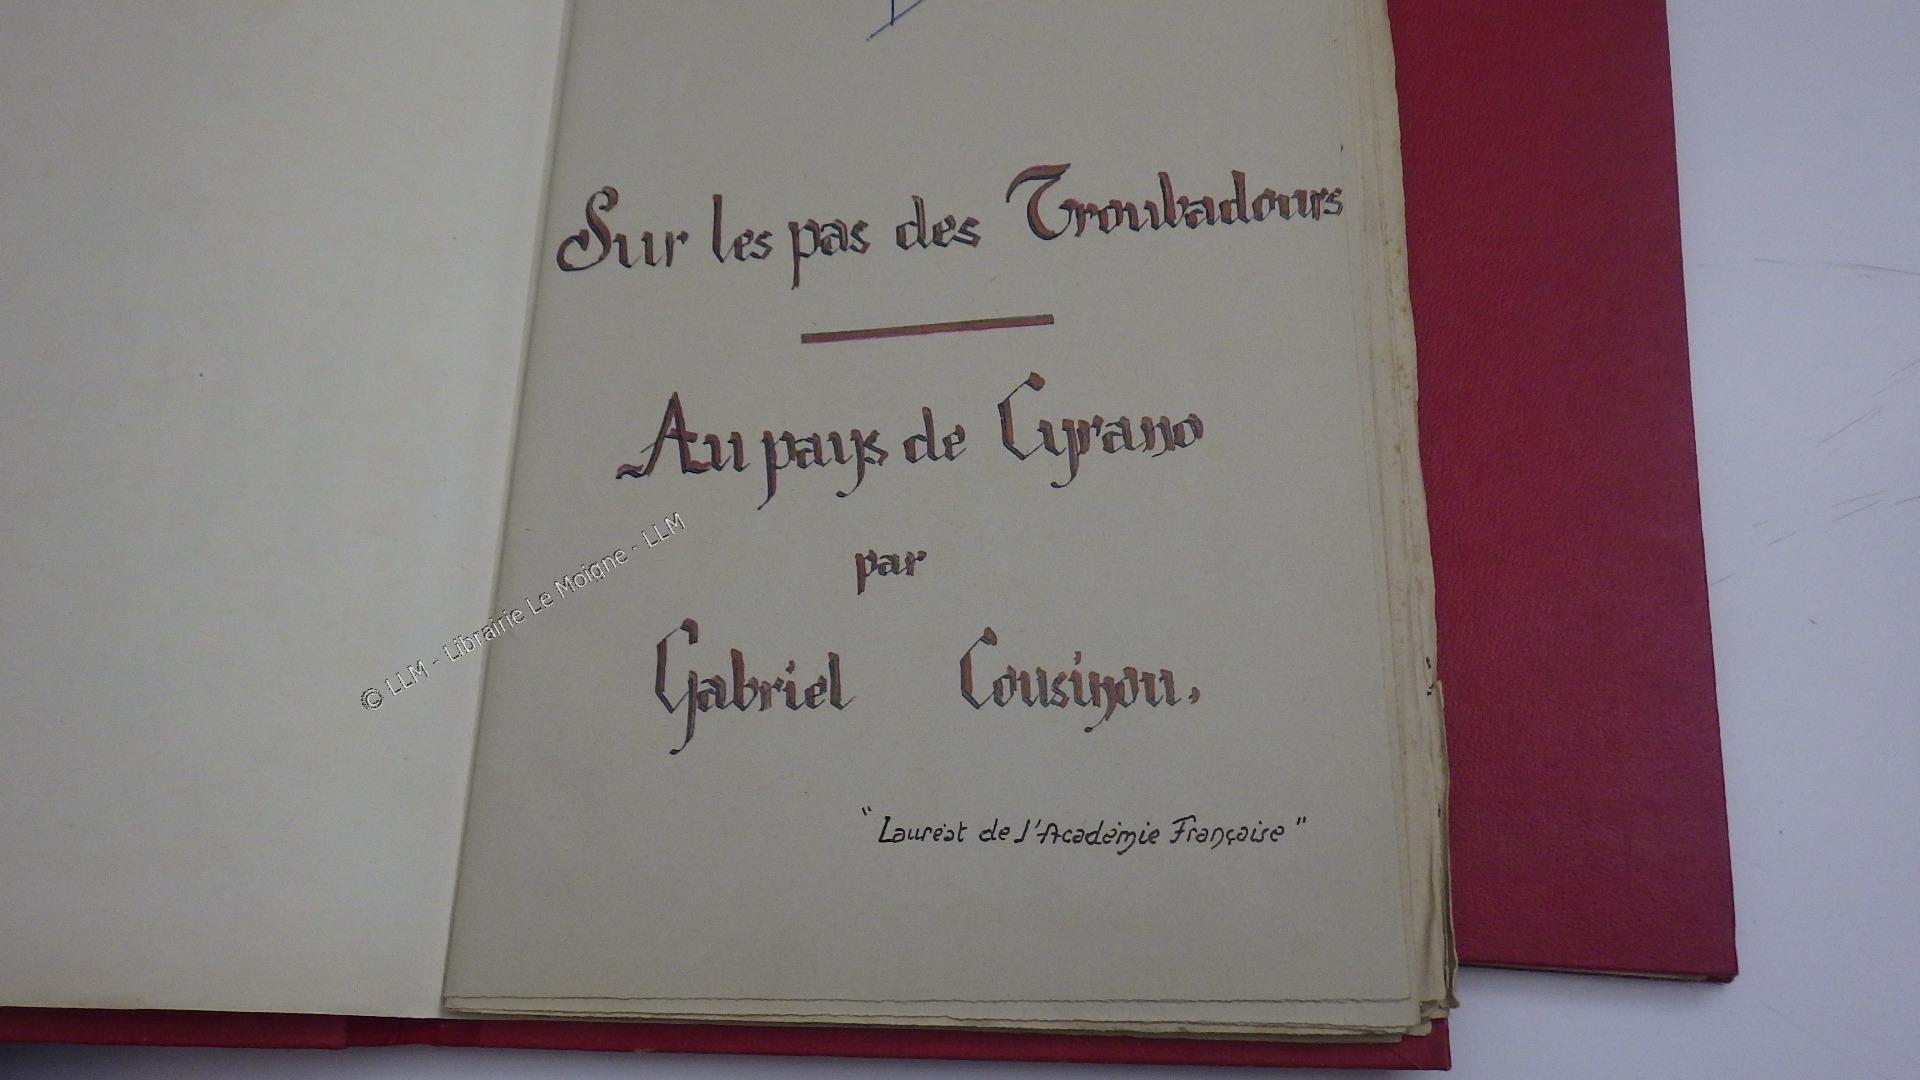 Sur les pas des Troubadours
Au pays de Cyrano
par
Gabriel Cousinou,
"Lauréat de l'Académie Française"
© LLM - Librairie Le Moigne - LLM